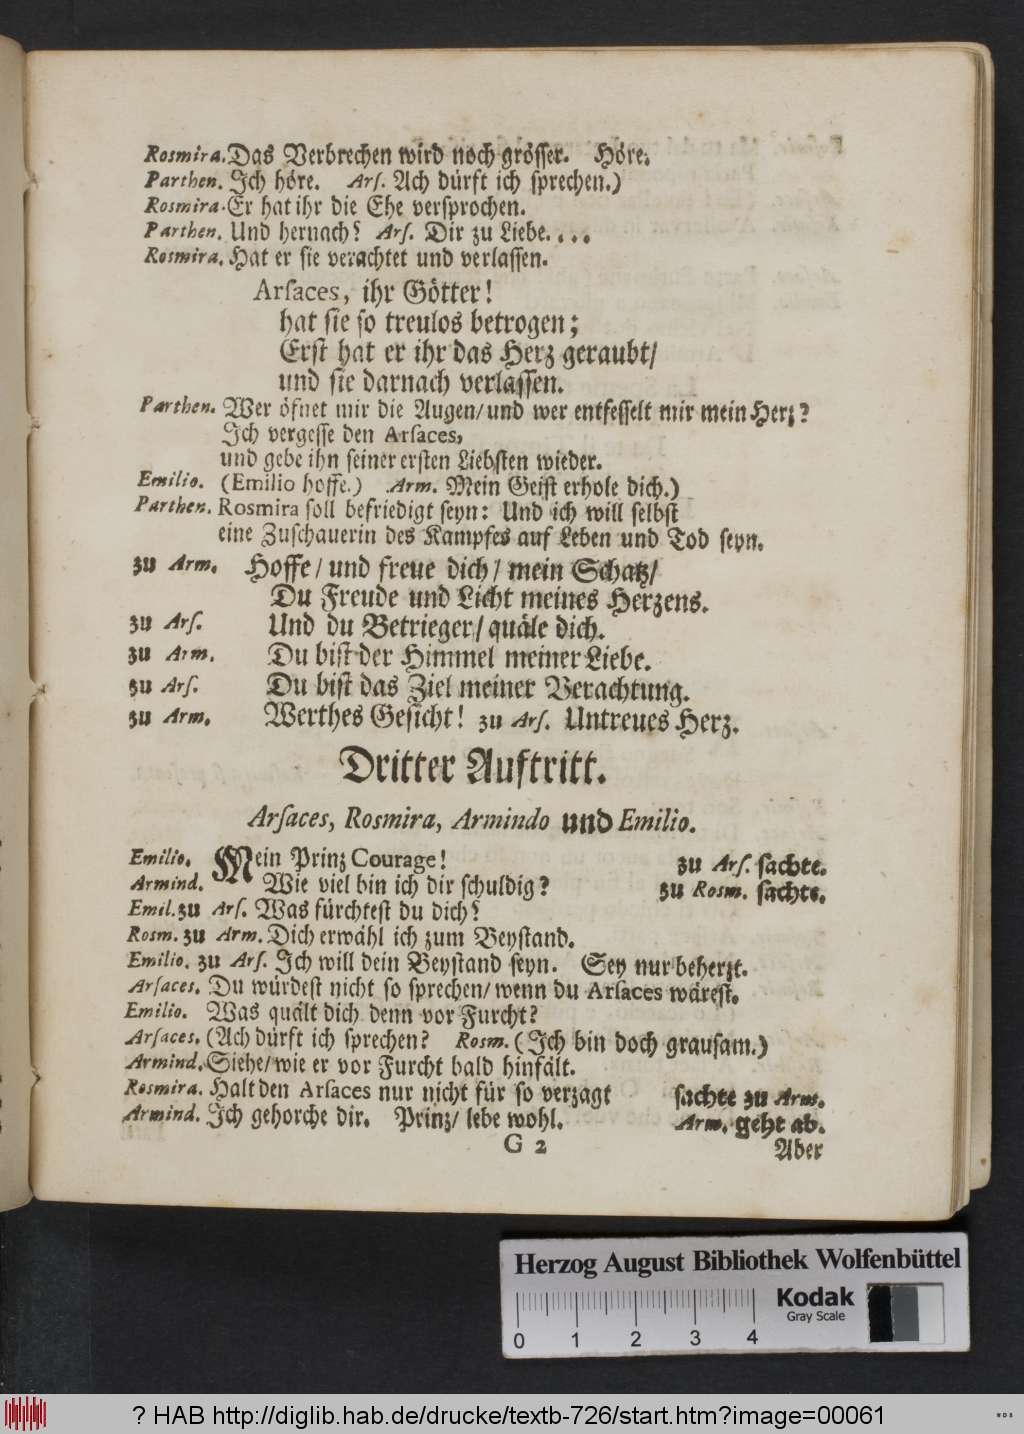 Rosmira. Das Verbrechen wird noch grösser. Höre.
Parthen. Ich höre. Arſ. Ach dürft ich sprechen.)
Rosmira. Er hat ihr die Ehe versprochen.
Parthen. Und hernach? Arſ. Dir zu Liebe. . . .
Rosmira. Hat er sie verachtet und verlassen.
Arſaces, ihr Götter!
hat sie so treulos betrogen;
Erst hat er ihr das Herz geraubt/
und sie darnach verlassen.
Parthen. Wer öfnet mir die Augen/ und wer entfesselt mir mein Herz?
Ich vergesse den Arſaces,
und gebe ihn seiner ersten Liebsten wieder.
Emilio. (Emilio hoffe.) Arm. Mein Geist erhole dich.)
Parthen. Rosmira soll befriedigt seyn: Und ich will selbst
eine Zuschauerin des Kampfes auf Leben und Tod seyn.
zu Arm. Hoffe/ und freue dich/ mein Schatz/
Du Freude und Licht meines Herzens.
zu Arſ. Und du Betrieger/ quäle dich.
zu Arm. Du bist der Himmel meiner Liebe.
zu Arſ. Du bist das Ziel meiner Verachtung.
zu Arm. Werthes Gesicht! zu Arſ. Untreues Herz.
Dritter Auftritt.
Arſaces, Rosmira, Armindo und Emilio.
Emilio. Mein Prinz Courage! zu Arſ. sachte.
Armind. Wie viel bin ich dir schuldig? zu Rosm. sachte.
Emil. zu Arſ. Was fürchtest du dich?
Rosm. zu Arm. Dich erwähl ich zum Beystand.
Emilio. zu Arſ. Ich will dein Beystand seyn. Sey nur beherzt.
Arſaces. Du würdest nicht so sprechen/ wenn du Arſaces wärest.
Emilio. Was quält dich denn vor Furcht?
Arſaces. (Ach dürft ich sprechen? Rosm. (Ich bin doch grausam.)
Armind. Siehe/ wie er vor Furcht bald hinfält.
Rosmira. Halt den Arſaces nur nicht für so verzagt sachte zu Arm.
Armind. Ich gehorche dir. Prinz/ lebe wohl. Arm. geht ab.
G 2
Aber
Herzog August Bibliothek Wolfenbüttel
Kodak
Gray Scale
0 1 2 3 4
? HAB http://diglib.hab.de/drucke/textb-726/start.htm?image=00061